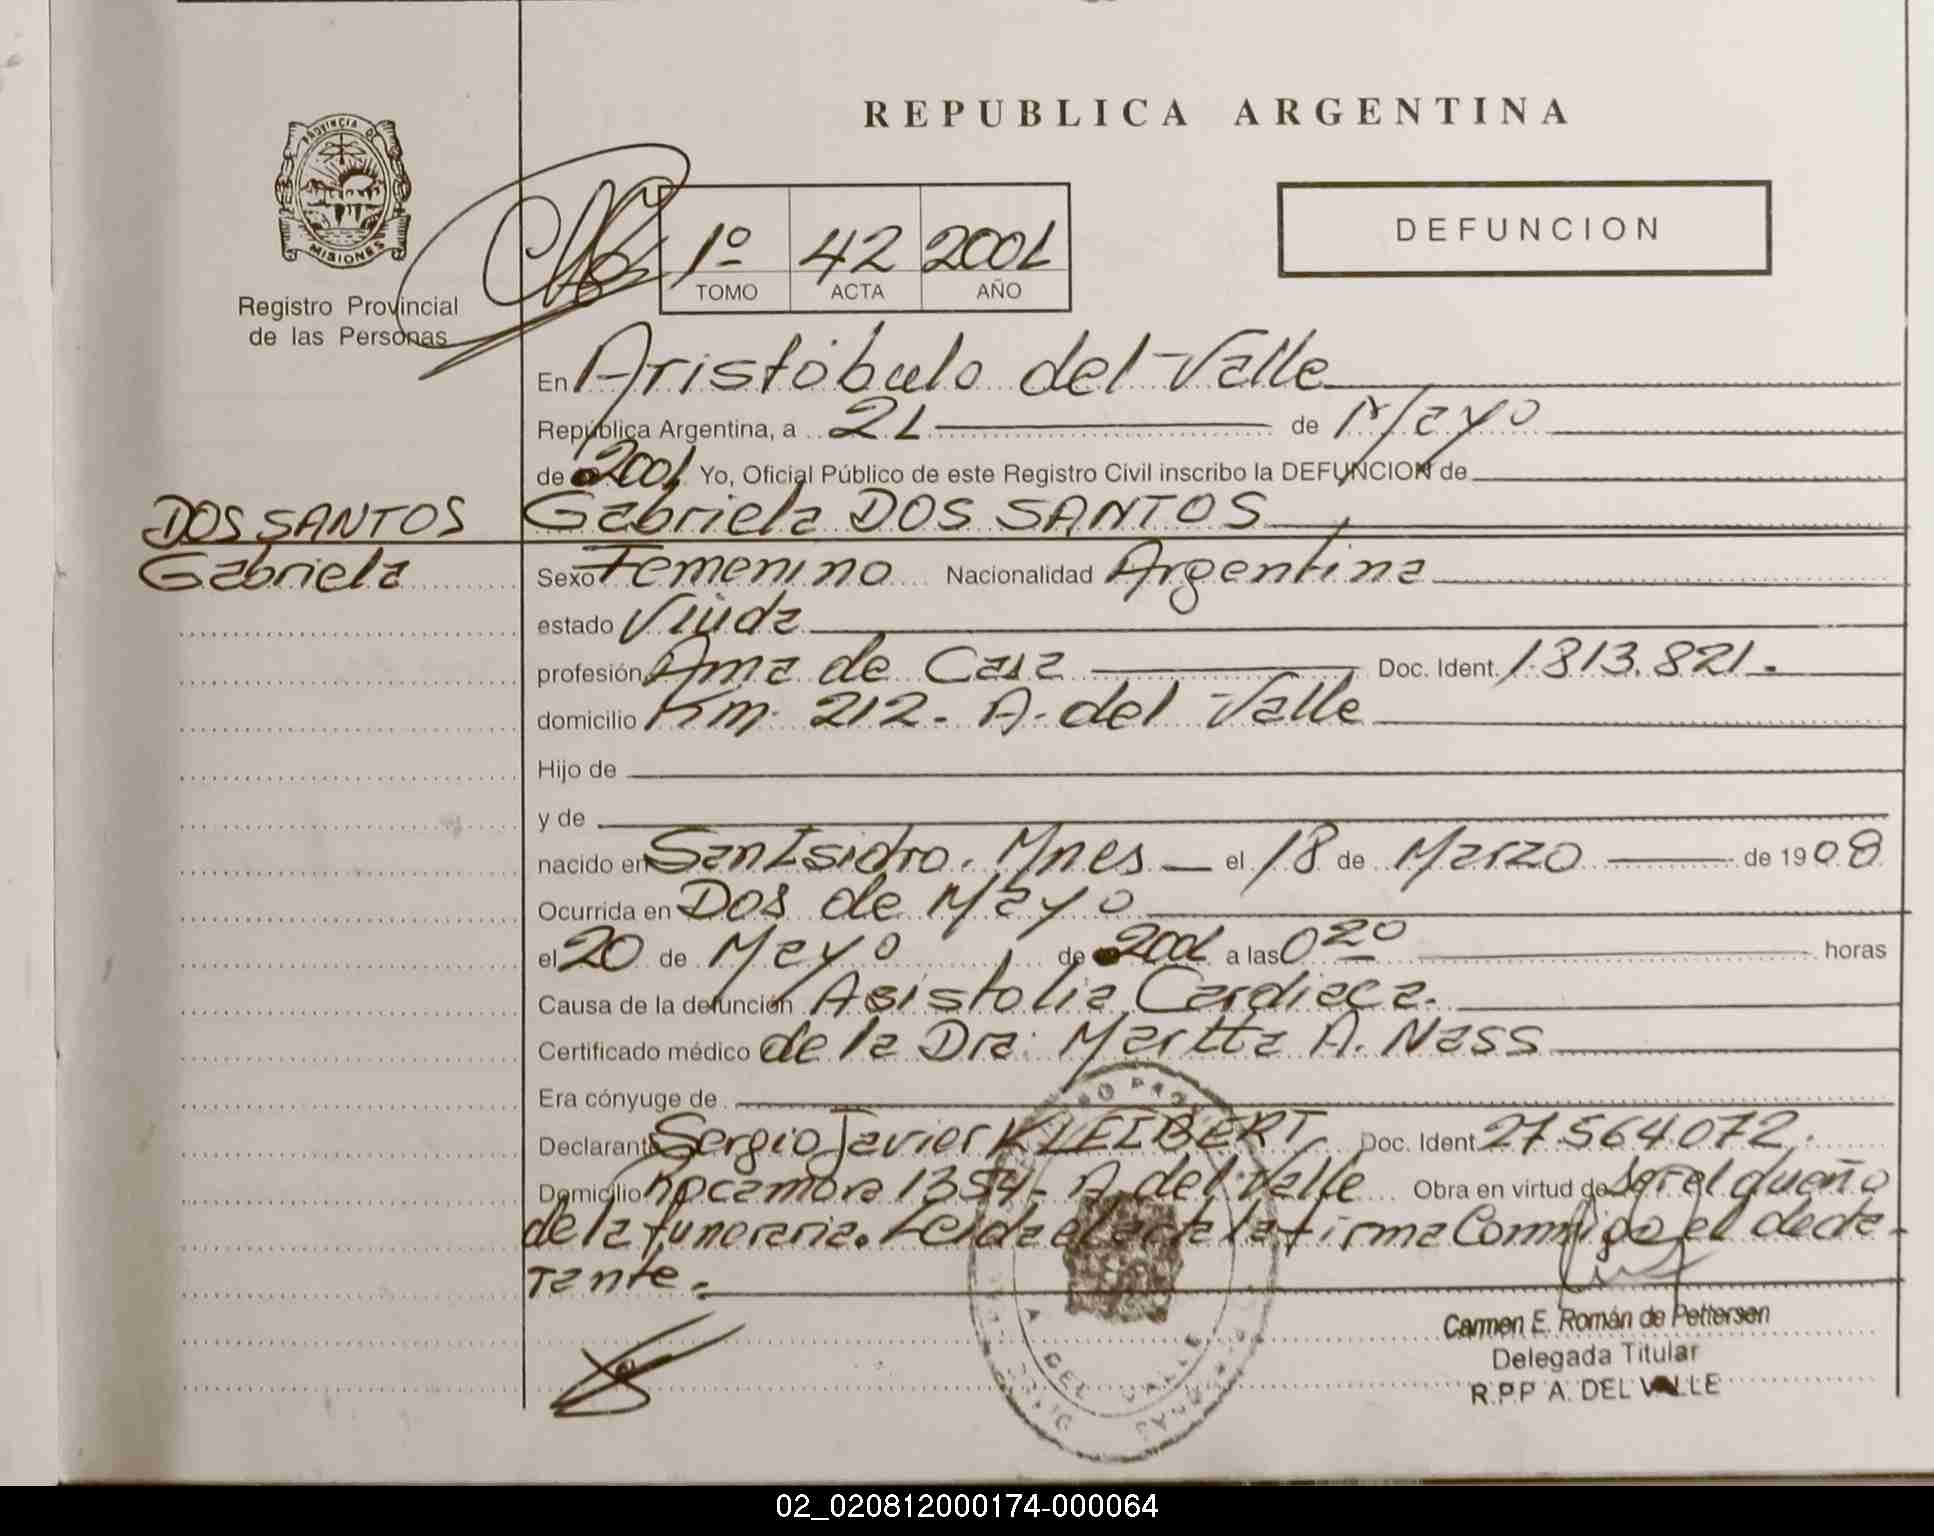 PROVINCIA DE
MISIONES
Registro Provincial
de las Personas
REPUBLICA ARGENTINA
DEFUNCION
1º 42 2001
TOMO ACTA AÑO
En Aristóbulo del Valle
República Argentina, a 21 de Mayo
de 2001 Yo, Oficial Público de este Registro Civil inscribo la DEFUNCION de
DOS SANTOS Gabriela DOS SANTOS
Gabriela Sexo Femenino Nacionalidad Argentina
estado Viuda
profesión Ama de Casa Doc. Ident. 1.813.821.
domicilio Km. 212 - A. del Valle
Hijo de
y de
nacido en San Isidro. Mnes el 18 de Marzo de 1908
Ocurrida en Dos de Mayo
el 20 de Mayo de 2001 a las 0 20 horas
Causa de la defunción Asistolia Cardiaca.
Certificado médico de la Dra: Martta A. Nass
Era cónyuge de
Declarante Sergio Javier KLEIBERT Doc. Ident. 27.564.072.
Domicilio Rocamora 1354 - A. del Valle Obra en virtud de ser el dueño
de la funeraria. Leida el acta la firma Conmigo el decla-
rante.
A. DEL VALLE
Carmen E. Román de Pettersen
Delegada Titular
R.P.P A. DEL VALLE
02_020812000174-000064